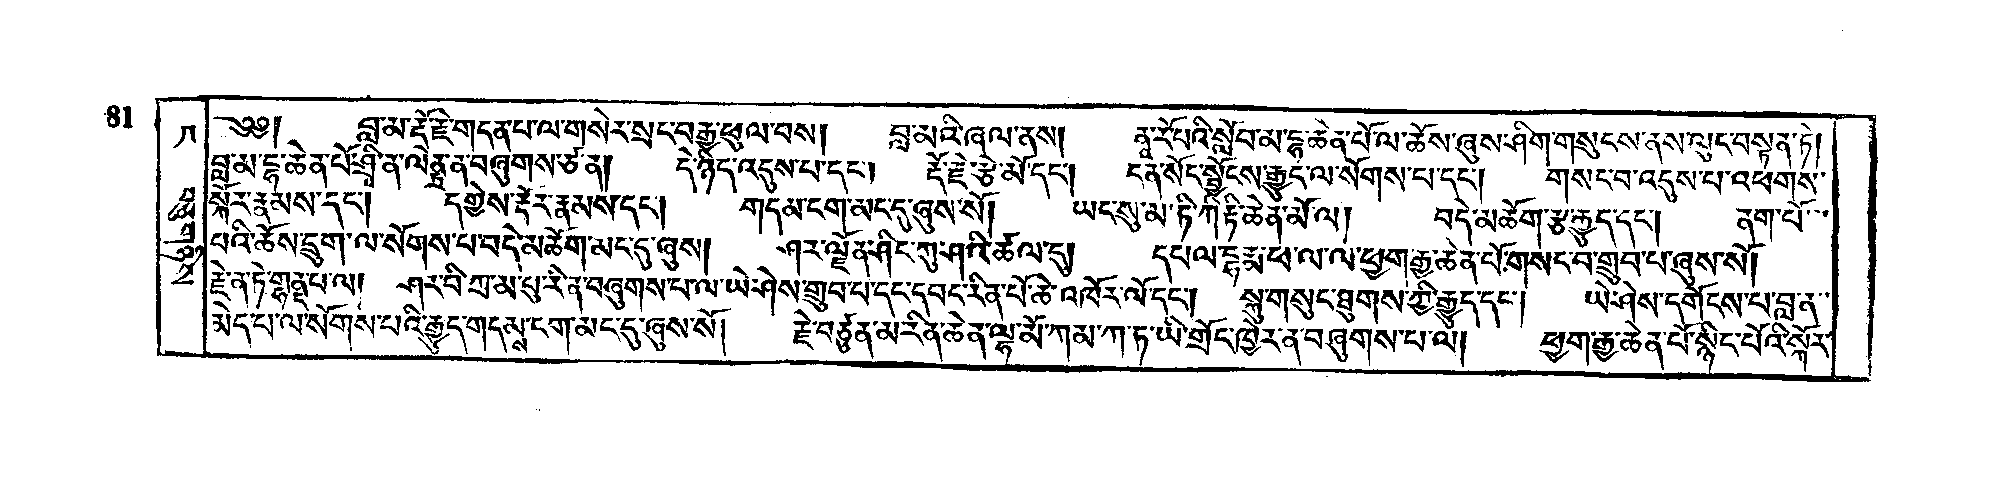 81
༄༅། བླ་མ་རྡོ་རྗེ་གདན་པ་ལ་གསེར་སྲང་བརྒྱ་ཕུལ་བས། བླ་མའི་ཞལ་ནས། ནཱ་རོ་པའི་སློབ་མ་དྷ་ཆེན་པོ་ལ་ཆོས་ཞུས་ཤིག་གསུངས་ནས་ལུང་བསྟན་ཏེ།
བླ་མ་དྷ་ཆེན་པོ་ཤྲཱི་ན་ལེནྡྲ་ན་བཞུགས་ཙ་ན། དེ་ཉིད་འདུས་པ་དང་། རྡོ་རྗེ་རྩེ་མོ་དང་། ངན་སོང་སྦྱོངས་རྒྱུད་ལ་སོགས་པ་དང་། གསང་བ་འདུས་པ་འཕགས་
སྐོར་རྣམས་དང་། དགྱེས་རྡོར་རྣམས་དང་། གདམ་ངག་མང་དུ་ཞུས་སོ། ཡང་སུ་མ་ཏི་ཀཱིརྟི་ཆེན་མོ་ལ། བདེ་མཆོག་རྩ་རྒྱུད་དང་། ནག་པོ་
པའི་ཆོས་དྲུག་ལ་སོགས་པ་བདེ་མཆོག་མང་དུ་ཞུས། ཤར་ལྗོན་ཤིང་ཀུ་ཤའི་ཚལ་དུ། དཔལ་དྷརྨ་ཕ་ལ་ལ་ཕྱག་རྒྱ་ཆེན་པོ་གསང་བ་གྲུབ་པ་ཞུས་སོ།
རྗེ་ན་ཏེ་ ཤར་བི་ཀྲ་མ་པུ་རི་ན་བཞུགས་པ་ལ་ཡེ་ཤེས་གྲུབ་པ་དང་དབང་རིན་པོ་ཆེ་འཁོར་ལོ་དང་། སྐུ་གསུང་ཐུགས་ཀྱི་རྒྱུད་དང་། ཡེ་ཤེས་དགོངས་པ་བླ་ན་
མེད་པ་ལ་སོགས་པའི་རྒྱུད་གདམས་ངག་མང་དུ་ཞུས་སོ། རྗེ་བཙུན་མ་རིན་ཆེན་ལྷ་མོ་ཀ་མ་ཀ་ཏ་ཡི་གྲོང་ཁྱེར་ན་བཞུགས་པ་ལ། ཕྱག་རྒྱ་ཆེན་པོ་སྙིང་པོའི་སྐོར་